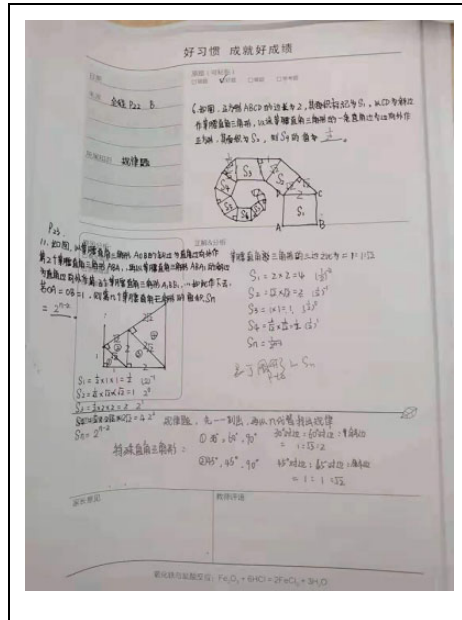 好习惯 成就好成绩
日期
金榜 P22 B
6.如图,正方形ABCD的边长为2,其面积标记为S₁,以CD为斜边
作等腰直角三角形,以该等腰直角三角形的一条直角边为边向外作
正方形,其面积为S₂,则S₄的值为 1/2 。
规律题
S₃
S₂
S₁
A
B
C
P23.
正解&分析
11.如图,以等腰直角三角形AOB的斜边为直角边向外作
第2个等腰直角三角形ABA₁,再以等腰直角三角形ABA₁的斜边
为直角边向外作第3个等腰直角三角形A₁BB₁,…如此作下去,
若OA=OB=1,则第n个等腰直角三角形的面积Sn
= 2ⁿ⁻² 。
等腰直角三角形的三边之比为=1:1:√2
S₁=2×2=4
S₂=√2×√2=2
S₃=1×1=1
S₁=½×1×1=½
S₂=½×√2×√2=1 2⁰
S₃=½×2×2=2 2¹
Sn=2ⁿ⁻²
规律题,先一一列出,再从几何意义找规律
特殊直角三角形:
①30°,60°,90°
30°对边:60°对边:斜边
=1:√3:2
②45°,45°,90°
45°对边:45°对边:斜边
=1:1:√2
家长意见
教师评语
氧化铁与盐酸反应:Fe₂O₃+6HCl=2FeCl₃+3H₂O